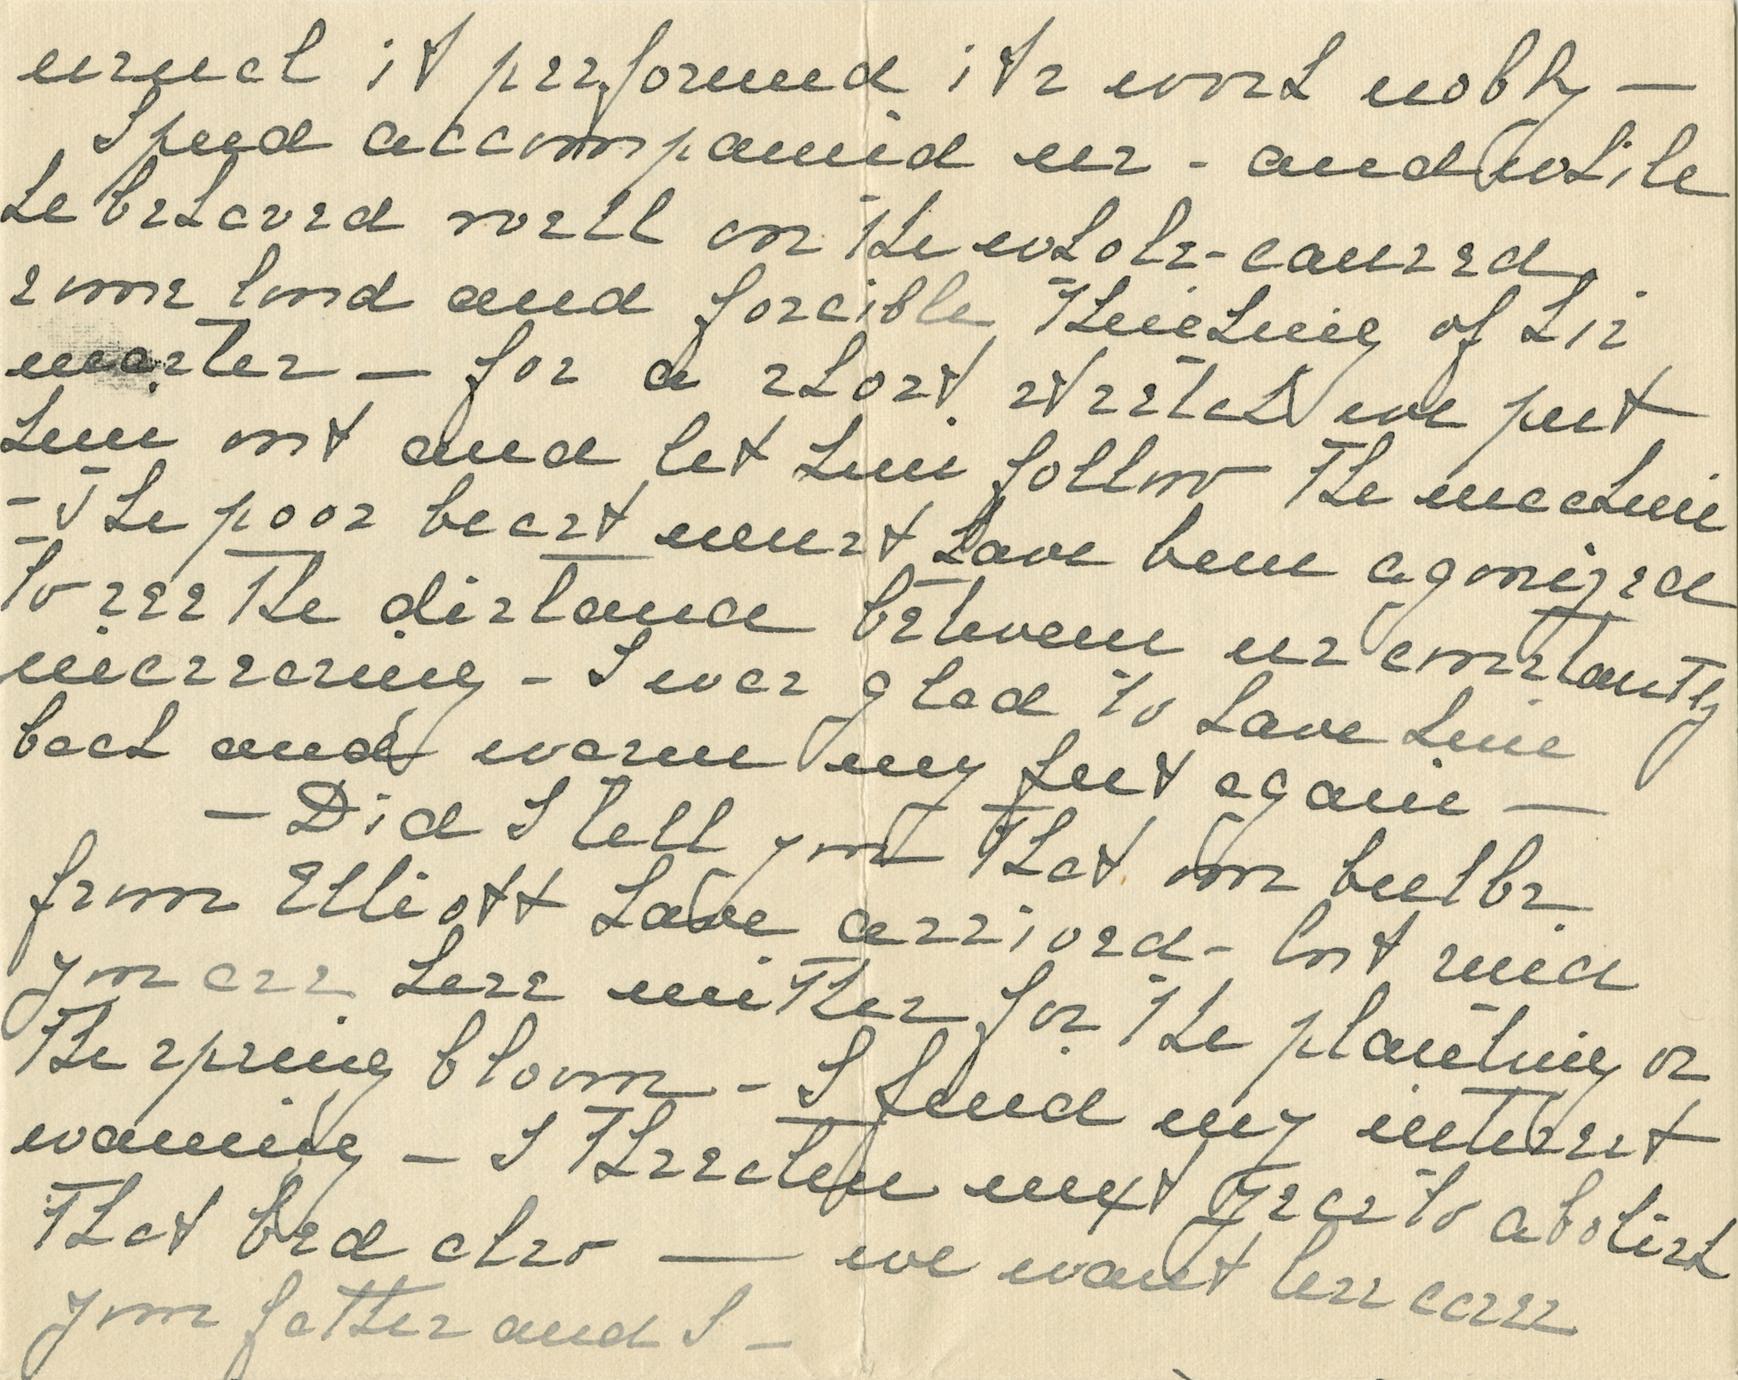 usual it performed its work nobly —
Speed accompanied us - and while
he behaved well on the whole - caused
some loud and forcible thinking of his
master — for a short stretch we put
him out and let him follow the machine
- The poor beast must have been agonized
to see the distance between us constantly
increasing - I was glad to have him
back and warm my feet again —
- Did I tell you that our bulbs
from Elliott have arrived - but since
you are here neither for the planting or
the spring bloom - I find my interest
waning - I threaten next year to abolish
that bed also — we want less care
your father and I -